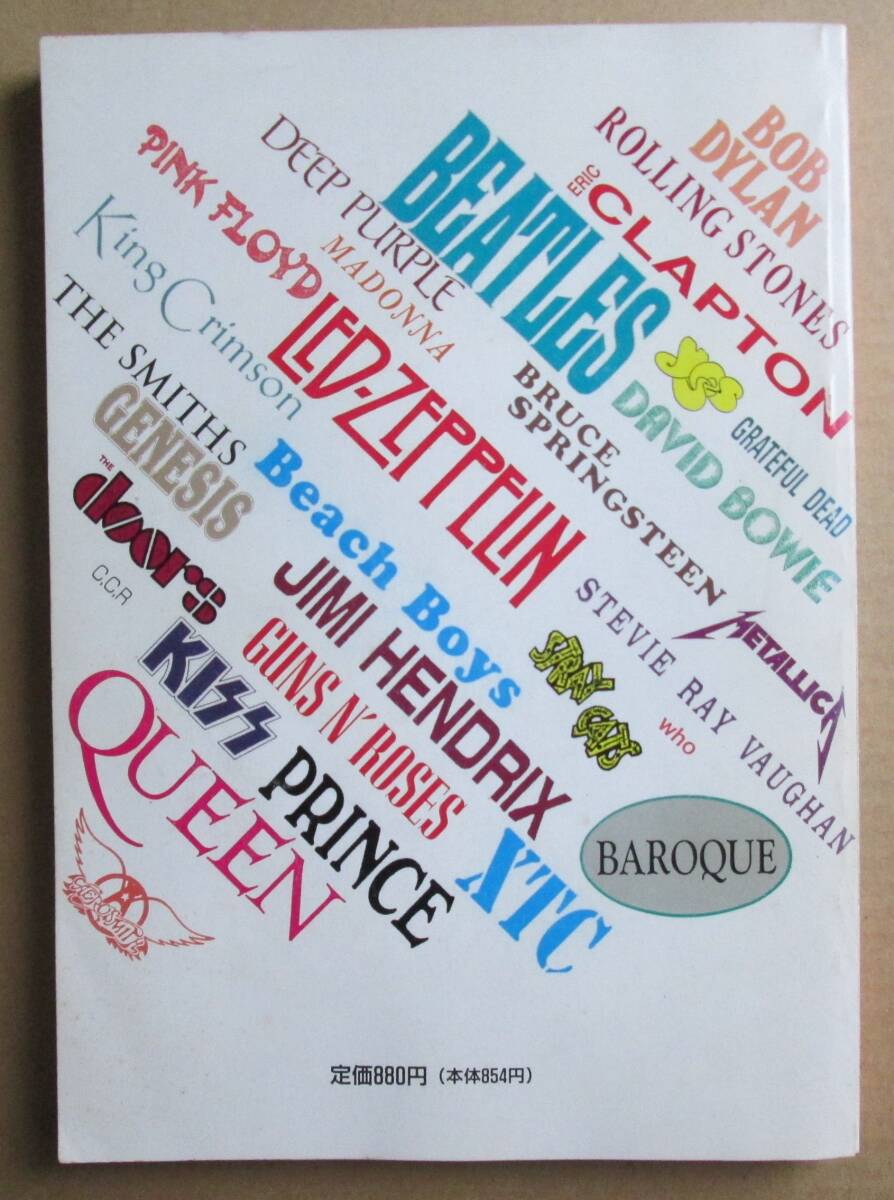 BOB
DYLAN
ROLLING STONES
ERIC
CLAPTON
BEATLES
DEEP PURPLE
PINK FLOYD
MADONNA
King Crimson
THE SMITHS
LED-ZEPPELIN
yes
GRATEFUL DEAD
DAVID BOWIE
BRUCE
SPRINGSTEEN
GENESIS
THE
doors
C.C.R
Beach Boys
JIMI HENDRIX
METALLICA
STEVIE RAY VAUGHAN
STRAY CATS
who
KISS
GUNS N' ROSES
QUEEN
PRINCE
XTC
BAROQUE
AEROSMITH
定価880円（本体854円）